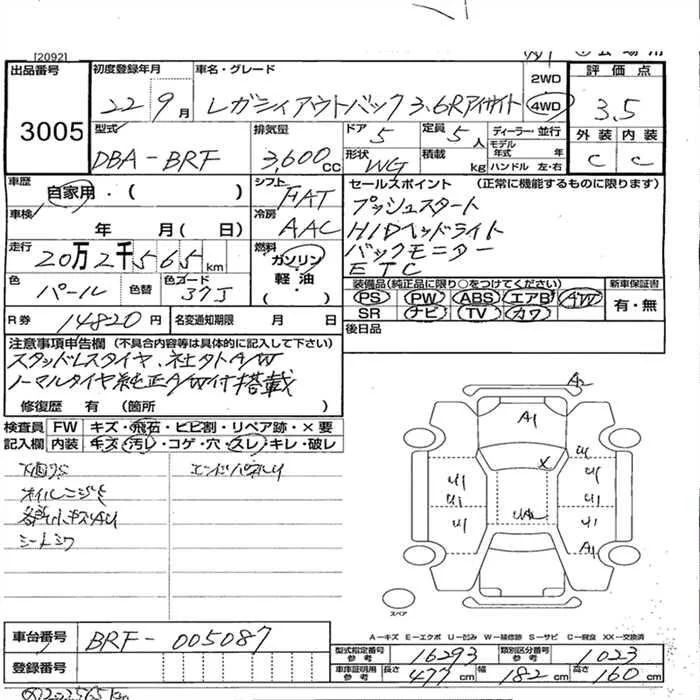 [2092]
出品番号 3005
初度登録年月 22 9月
車名・グレード レガシィアウトバック 3.6Rアイサイト
2WD
4WD
評価点 3.5
型式 DBA-BRF
排気量 3,600 CC
ドア 5
定員 5人
形状 WG
積載 kg
ディーラー・並行
モデル年式 年
ハンドル 左・右
外装 内装
C C
車歴 自家用・( )
シフト FAT
セールスポイント (正常に機能するものに限ります)
プッシュスタート
HIDヘッドライト
バックモニター
ETC
車検 年 月( 日)
冷房 AAC
走行 20万2千565km
燃料 ガソリン
軽油
・( )
色 パール 色替 色コード 37J
装備品(純正品に限り○をつけてください)
PS PW ABS エアB AW
SR ナビ TV カワ
新車保証書
有・無
R券 14820円 名変通知期限 月 日
後日品
注意事項申告欄 (不具合内容等は具体的に記入して下さい)
スタッドレスタイヤ、社外A/W
ノーマルタイヤ純正A/W付搭載
修復歴 有 (箇所 )
検査員記入欄
FW キズ・飛石・ヒビ割・リペア跡・×要
内装 キズ・汚レ・コゲ・穴・スレ・キレ・破レ
下廻サビ
エンドパネルU
オイルニジミ
各部小キズAU
シートシワ
A2
A1
X
U1 U1
U1 U1
U1 U1
UA2
A1
スペア
A-キズ E-エクボ U-凹み W-補修跡 S-サビ C-腐食 XX-交換済
車台番号 BRF-005087
登録番号
型式指定番号参考 16293 類別区分番号参考 1023
車庫証明用参考 長さ 477cm 幅 182cm 高さ 160cm